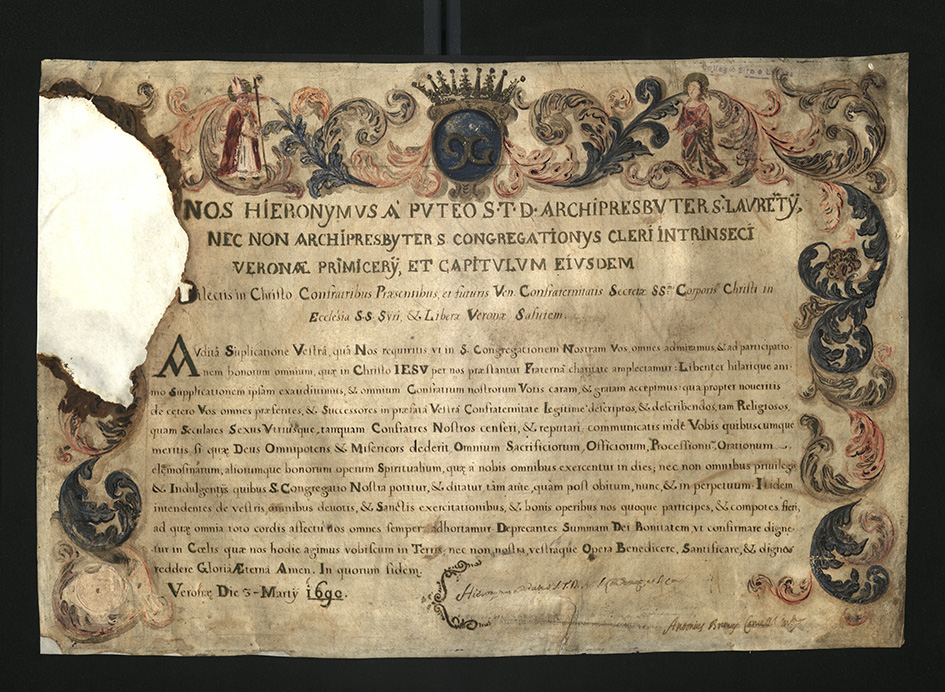 NOS HIERONYMVS A' PVTEO S·T·D· ARCHIPRESBVTER S. LAVRETŸ,
NEC NON ARCHIPRESBYTER S CONGREGATIONYS CLERI INTRINSECI
VERONÆ PRIMICERŸ, ET CAPITVLVM EIVSDEM
Dilectis in Christo Confratribus Præsentibus, et futuris Ven. Confraternitatis Secretæ SS. Corporis Christi in
Ecclesia S.S. Syri, & Liberæ Veronæ Salutem.
Avditâ Suplicatione Vestrâ, quâ Nos requiritis vt in S. Congregationem Nostram Vos, omnes admittamus, & ad participatio-
nem bonorum omnium, quæ in Christo IESV per nos præstantur Fraternâ charitate amplectamur: Libenter hilarique ani-
mo Supplicationem ipsam exaudiuimus, & omnium Confratrum nostrorum Votis caram, & gratam accepimus: quapropter noueritis
de cetero Vos omnes præsentes, & Successores in præfatâ Vestrâ Confraternitate Legitimè descriptos, & describendos, tam Religiosos,
quam Seculares Sexus Vtriusque, tanquam Confratres Nostros censeri, & reputari, communicatis indè Vobis quibuscumque
meritis, si quæ Deus Omnipotens & Misericors dederit Omnium Sacrificiorum, Officiorum, Processionũ Orationum
elemosinarum, aliorumque bonorum operum Spiritualium, quæ à nobis omnibus exercentur in dies; nec non omnibus priuilegijs
& Indulgentijs quibus S. Congregatio Nostra potitur, & ditatur, tàm ante, quàm post obitum, nunc, & in perpetuum. Itidem
intendentes de vestris omnibus deuotis, & Sanctis exercitationibus, & bonis operibus nos quoque participes, & compotes fieri,
ad quæ omnia toto cordis affectu vos omnes semper adhortamur. Deprecantes Summam Dei Bonitatem vt confirmare digne-
tur in Cœlis quæ nos hodie agimus vobiscum in Terris; nec non nostra, vestraque Opera Benedicere, Santificare, & dignos
reddere Gloriâ Æternâ Amen. In quorum fidem.
Veronæ Die 3 - Martÿ 1690.
Antonius